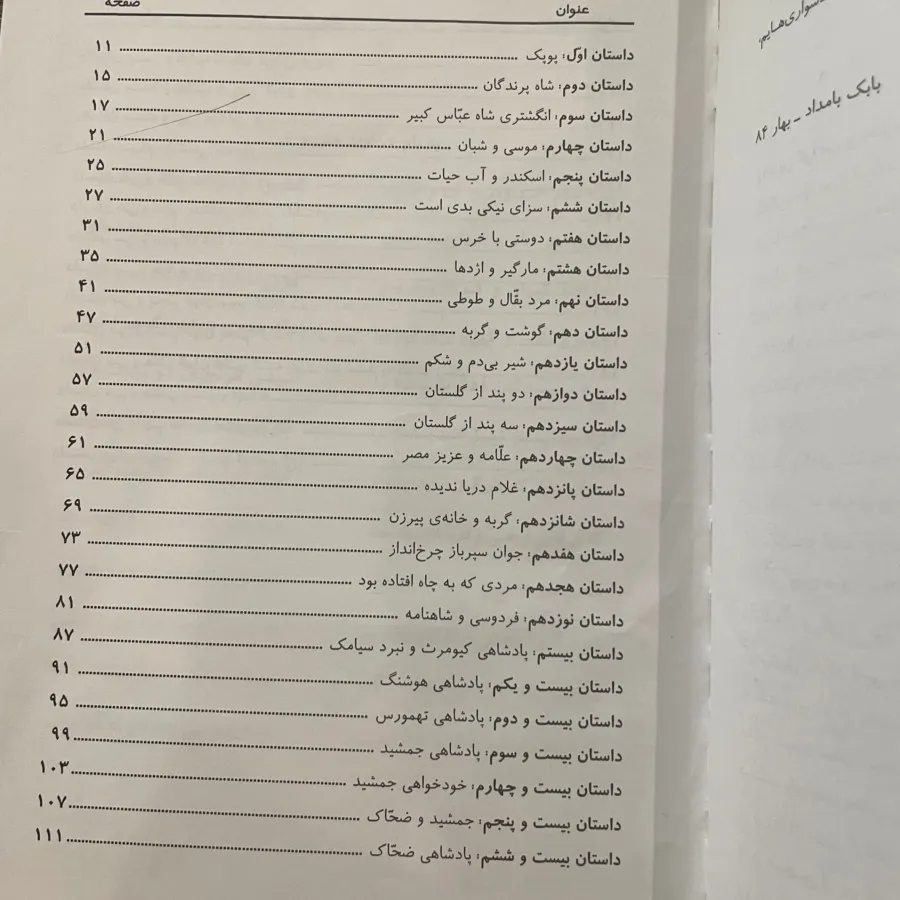 عنوان صفحه
داستان اوّل: پوپک ۱۱
داستان دوم: شاه پرندگان ۱۵
داستان سوم: انگشتری شاه عبّاس کبیر ۱۷
داستان چهارم: موسی و شبان ۲۱
داستان پنجم: اسکندر و آب حیات ۲۵
داستان ششم: سزای نیکی بدی است ۲۷
داستان هفتم: دوستی با خرس ۳۱
داستان هشتم: مارگیر و اژدها ۳۵
داستان نهم: مرد بقّال و طوطی ۴۱
داستان دهم: گوشت و گربه ۴۷
داستان یازدهم: شیر بی‌دم و شکم ۵۱
داستان دوازهم: دو پند از گلستان ۵۷
داستان سیزدهم: سه پند از گلستان ۵۹
داستان چهاردهم: علّامه و عزیز مصر ۶۱
داستان پانزدهم: غلام دریا ندیده ۶۵
داستان شانزدهم: گربه و خانه‌ی پیرزن ۶۹
داستان هفدهم: جوان سپرباز چرخ‌انداز ۷۳
داستان هجدهم: مردی که به چاه افتاده بود ۷۷
داستان نوزدهم: فردوسی و شاهنامه ۸۱
داستان بیستم: پادشاهی کیومرث و نبرد سیامک ۸۷
داستان بیست و یکم: پادشاهی هوشنگ ۹۱
داستان بیست و دوم: پادشاهی تهمورس ۹۵
داستان بیست و سوم: پادشاهی جمشید ۹۹
داستان بیست و چهارم: خودخواهی جمشید ۱۰۳
داستان بیست و پنجم: جمشید و ضحّاک ۱۰۷
داستان بیست و ششم: پادشاهی ضحّاک ۱۱۱
بابک بامداد ـ بهار ۸۴